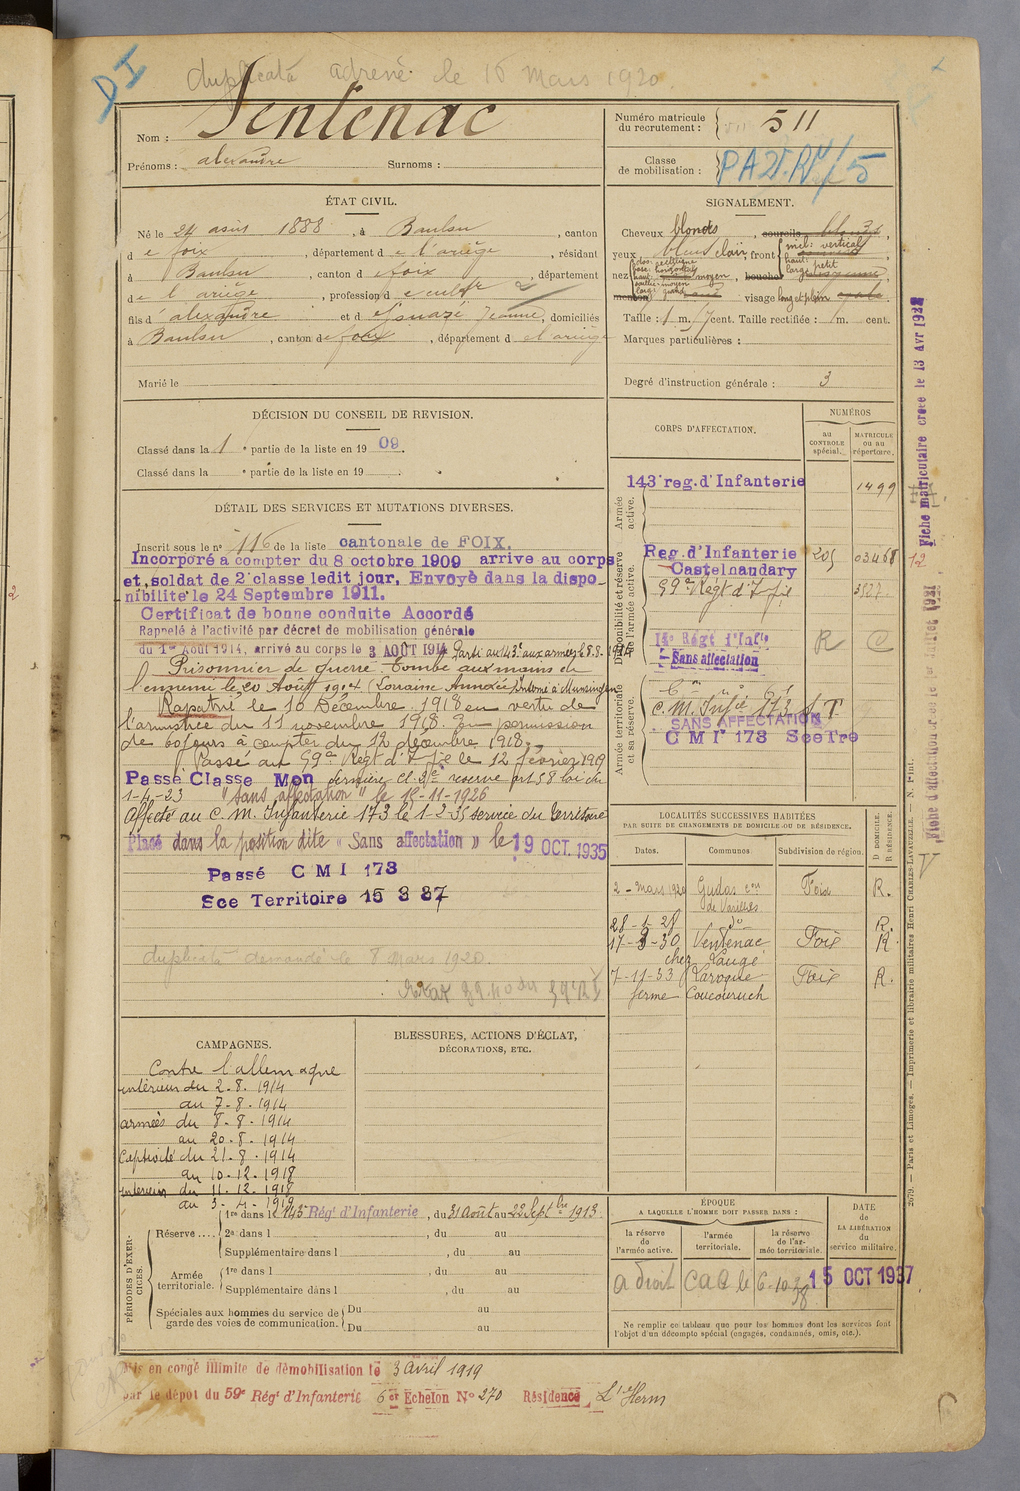 DI
duplicata adrené le 16 Mars 1920
Nom : Sentenac
Prénoms : alexandre Surnoms :
Numéro matricule du recrutement : 511
Classe de mobilisation :
ÉTAT CIVIL.
Né le 24 août 1888, à Baulou, canton
de foix, département de l'ariège, résidant
à Baulou, canton de foix, département
de l'ariège, profession de cultr
fils d'alexandre et d Jeanne, domiciliés
à Baulou, canton de foix, département de l'ariège
Marié le
SIGNALEMENT.
Cheveux blonds, sourcils blonds,
yeux bleus clair, front incl: vertical
haut: large petit
nez dos: rectiligne base: horizontale haut: moyen, bouche
saillie: moyen large: grand
menton visage long et plein ovale
Taille : 1 m. cent. Taille rectifiée : 1 m. cent.
Marques particulières :
Degré d'instruction générale : 3
DÉCISION DU CONSEIL DE REVISION.
Classé dans la 1e partie de la liste en 1909.
Classé dans la e partie de la liste en 19
DÉTAIL DES SERVICES ET MUTATIONS DIVERSES.
Inscrit sous le n° 116 de la liste cantonale de FOIX.
Incorporé à compter du 8 octobre 1909 arrive au corps
et soldat de 2e classe ledit jour. Envoyé dans la dispo-
nibilité le 24 Septembre 1911.
Certificat de bonne conduite Accordé
Rappelé à l'activité par décret de mobilisation générale
du 1er Août 1914, arrivé au corps le 3 AOÛT 1914 Parti au 143e aux armées le 8-8-1914
Prisonnier de guerre Tombé aux mains de
l'ennemi le 20 Août 1914 (Lorraine Annexée) Interné à Munsingen
Rapatrié le 10 Décembre 1918 en vertu de
l'armistice du 11 novembre 1918. En permission
de 60 jours à compter du 12 décembre 1918.
Passé au 59e Régt d'Ie le 12 février 1919
Passé Classe Mon dernière cl. 2e reserve art 58 loi du
1-4-23 "sans affectation" le 15-11-1926
Affecté au C. M. Infanterie 173 le 1-2-35 service du territoire
Placé dans la position dite « Sans affectation » le 19 OCT. 1935
Passé C M I 173
Sce Territoire 15 3 37
duplicata demandé le 8 Mars 1920.
CORPS D'AFFECTATION.
NUMÉROS
au CONTROLE spécial.
MATRICULE ou au répertoire.
Armée active.
143e reg. d'Infanterie 1499
Disponibilité et réserve de l'armée active.
Reg. d'Infanterie
Castelnaudary
59e Régt d'Ie
14e Régt d'Infie R C
Sans affectation
Armée territoriale et sa réserve.
C. M. Infie 173 S T
SANS AFFECTATION
C M I 173 Sce Tre
LOCALITÉS SUCCESSIVES HABITÉES
PAR SUITE DE CHANGEMENTS DE DOMICILE OU DE RÉSIDENCE.
Dates. Communes. Subdivision de région. D DOMICILE. R RÉSIDENCE.
2 - Mars 1920 Gudas con de Varilhes Foix R.
28-1-28 do R.
17-3-30 Ventenac Foix R.
chez Laugé
7-11-33 Laroque Foix R.
ferme Coucouruch
CAMPAGNES.
Contre l'allemagne
intérieur du 2-8-1914
au 7-8-1914
armées du 8-8-1914
au 20-8-1914
Captivité du 21-8-1914
au 10-12-1918
intérieur du 11-12-1918
au 3-4-1919
BLESSURES, ACTIONS D'ÉCLAT,
DÉCORATIONS, ETC.
PÉRIODES D'EXERCICES.
Réserve.... 1re dans l 143e Régt d'Infanterie, du 31 Août au 22 Septbre 1913
2e dans l , du au
Supplémentaire dans l , du au
Armée territoriale. 1re dans l , du au
Supplémentaire dans l , du au
Spéciales aux hommes du service de garde des voies de communication. Du au
Du au
ÉPOQUE
A LAQUELLE L'HOMME DOIT PASSER DANS :
la réserve de l'armée active.
l'armée territoriale.
la réserve de l'armée territoriale.
DATE de LA LIBÉRATION du service militaire.
a droit CAC le 6-10-38 15 OCT 1937
Ne remplir ce tableau que pour les hommes dont les services font
l'objet d'un décompte spécial (engagés, condamnés, omis, etc.).
Mis en congé illimité de démobilisation le 3 avril 1919
par le dépôt du 59e Régt d'Infanterie 6er Echelon N° 270 Résidence L'Herm
Fiche matriculaire créée le 13 avr
2679. — Paris et Limoges. — Imprimerie et librairie militaires Henri CHARLES-LAVAUZELLE. — N. Fint.